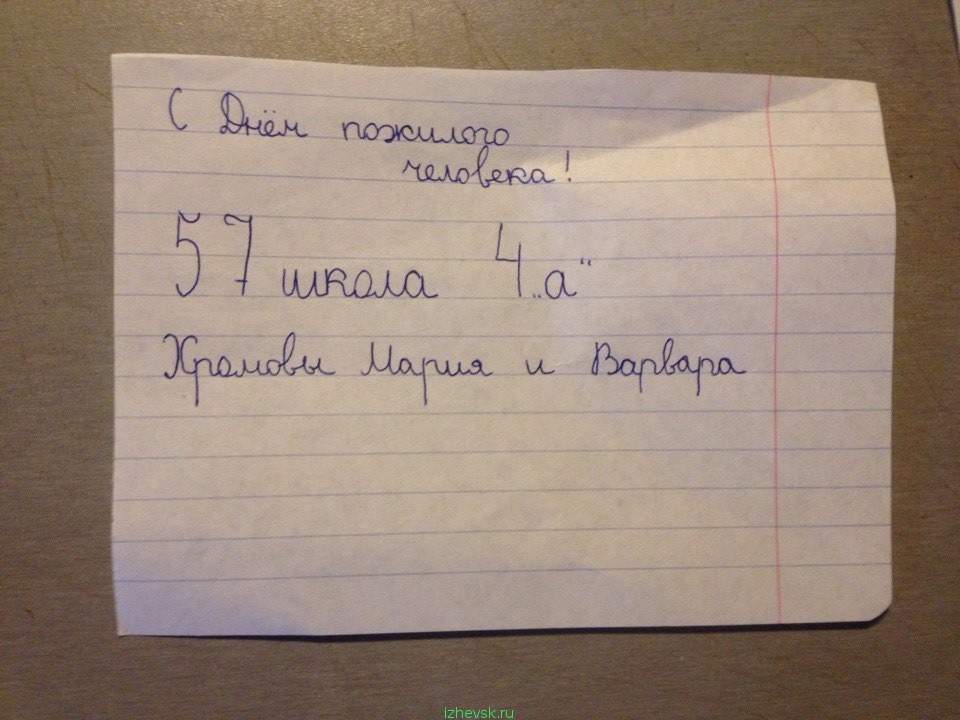 С Днём пожилого
человека!
57 школа 4 „а“
Храмовы Мария и Варвара
izhevsk.ru